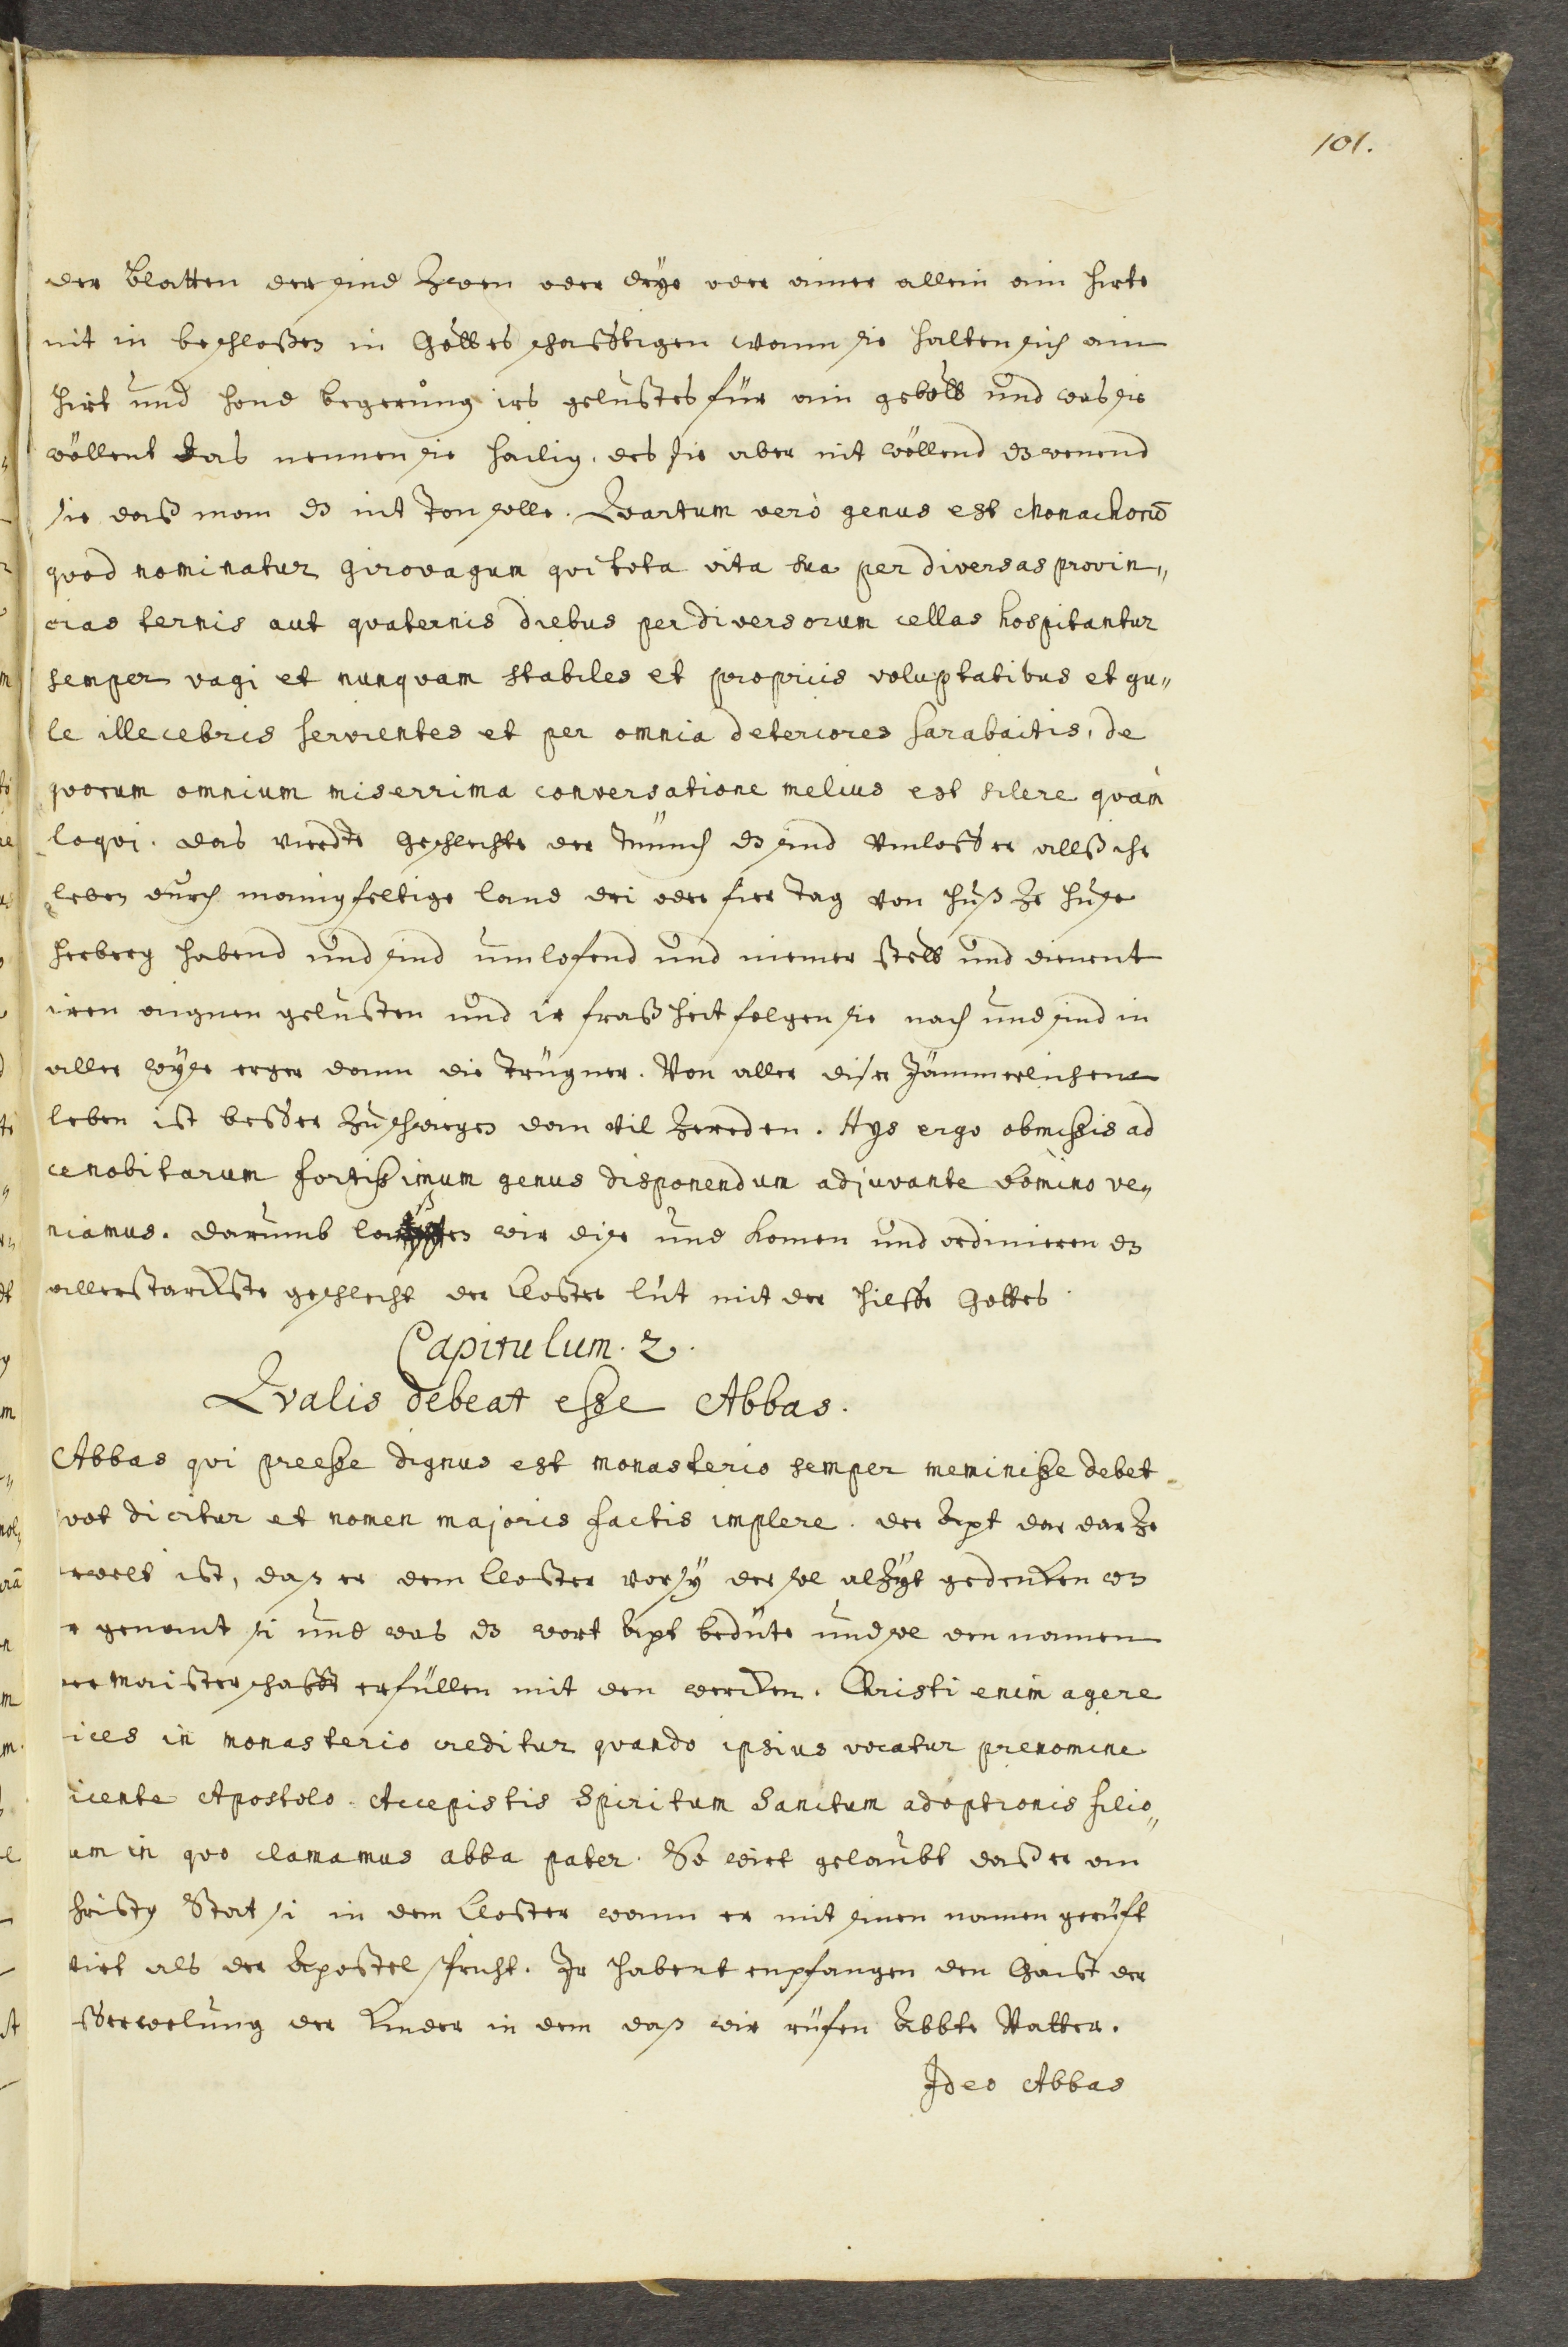 101.
der Blatten der sind zwen oder drye oder ainer allein ain hirte
nit in beschloßen in Gottes schaffstigen wann sie halten sich ain
hirt und hond begerung irs gelustes für ain gebott und was sie
wöllent das nennen sie hailig, des sie aber nit wöllend dz wenend
sie daß man dz nit ton solle. Qvartum verò genus est Monachorū
qvod nominatur girovagum qvi tota vita sua per diversas provin„
cias ternis aut qvaternis diebus per diversorum cellas hospitantur
semper vagi et nunqvam stabiles et propriis voluptatibus et gu„
le illecebris servientes et per omnia deteriores sarabaitis, de
qvorum omnium miserrima conversatione melius est silere qvàm
loqvi. das vierdte geschlechte der münch dz sind umloffer allß ihr
leben durch manigfeltige land dri oder fier tag von huß ze huße
herberg habend und sind umlofend und niemer stett und dienent
iren aignen gelusten und ir fraßheit folgen sie nach und sind in
aller wyse erger dann die Trügner. Von aller diser Jämmerlichem
leben ist besser zuschwigen dan vil zereden. Hys ergo obmißis ad
cenobitarum fortißimum genus disponendum adjuvante Domino ve„
niamus. darumb laßen wir dise und komen und ordinieren dz
allerstarckste geschlecht der Closter lüt mit der hilffe Gottes.
Capitulum. 2.
Qvalis debeat eße Abbas.
Abbas qvi preeße dignus est monasterio semper meminiße debet
qvot dicitur et nomen majoris factis implere. der Apt der dar ze
erwelt ist, daß er dem Closter vorsy der sol alzyt gedencken wz
er genant si und was dz wort Apt bedüte und sol den namen
der maisterschafft erfüllen mit den wercken. Christi enim agere
ices in monasterio creditur qvando ipsius vocatur prenomine
icente Apostolo. Accepistis Spiritum Sanctum adoptionis filio„
um in qvo clamamus abba pater. So wirt gelaubt daß er an
hristy Stat si in dem Closter wann er mit sinen namen gerüft
wirt als der Apostel spricht. Ir habent enpfangen den Gaist der
sserwelung der Kinder in dem daß wir rüfen Abbte Vatter.
Ideo Abbas